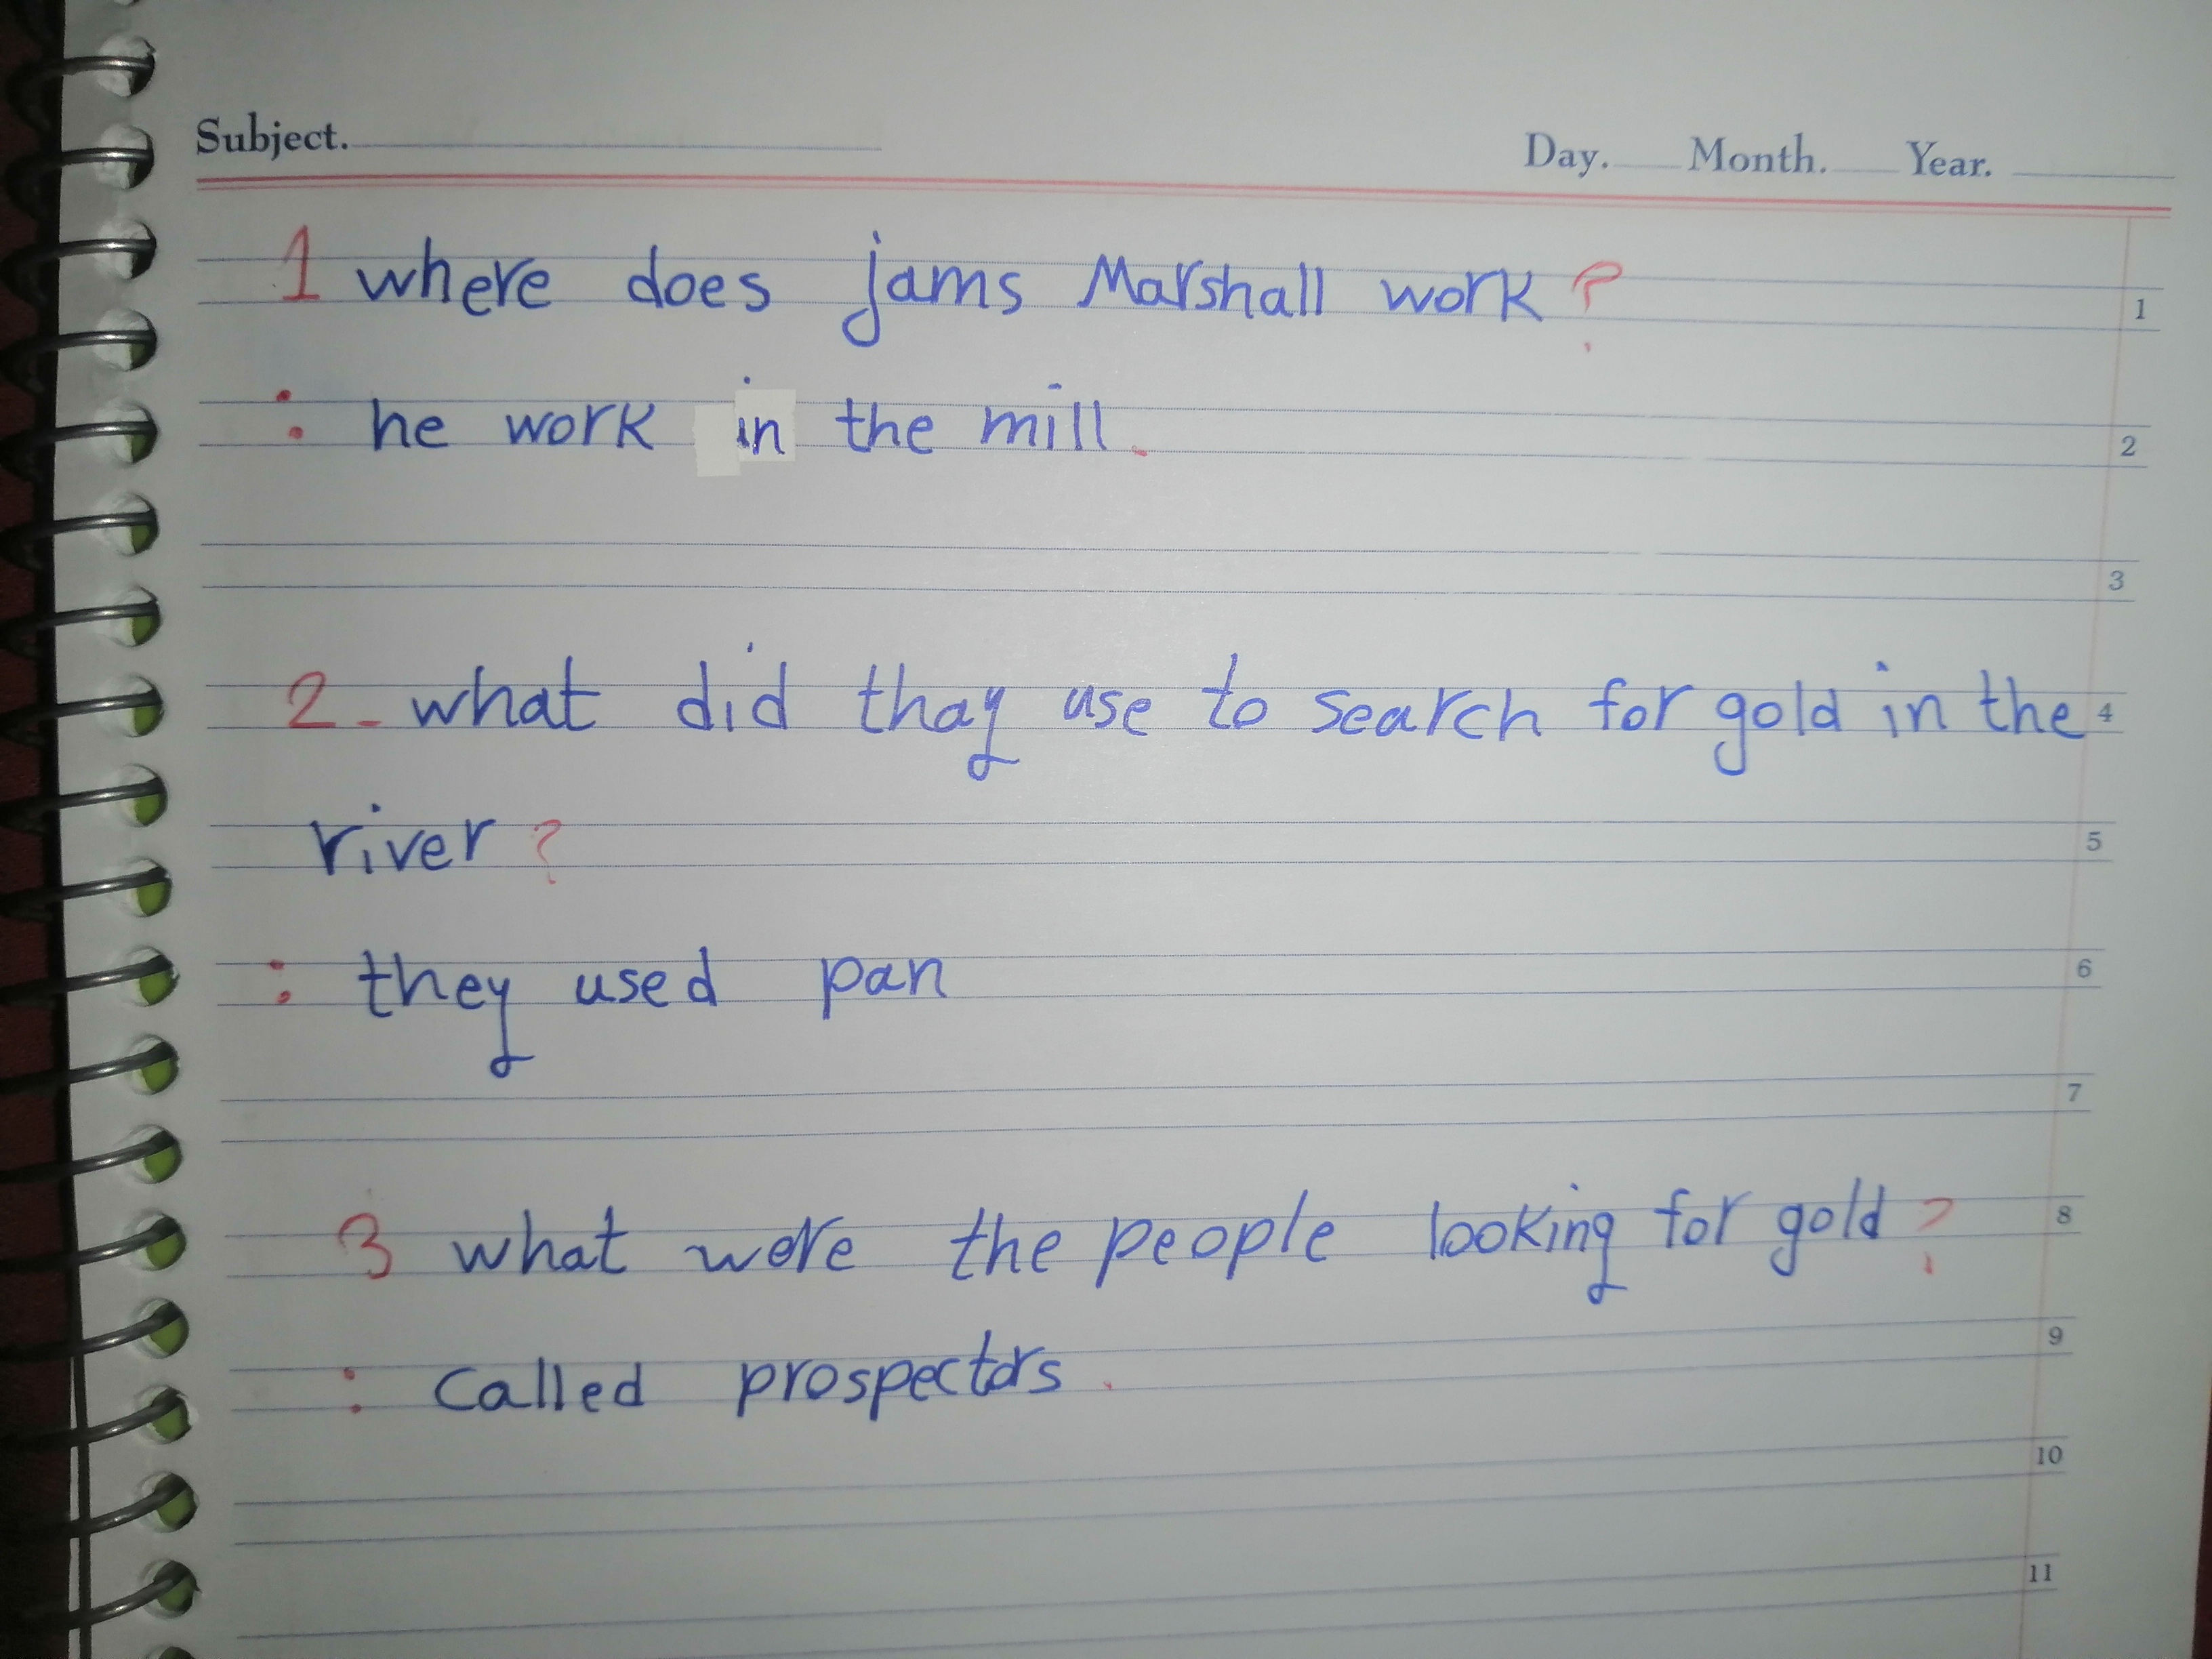 Subject.
Day. Month. Year.
1 where does jams Marshall work?
1
: he work in the mill.
2
3
2- what did thay use to search for gold in the
4
river?
5
: they used pan
6
7
3 what were the people looking for gold?
8
: called prospectors.
9
10
11